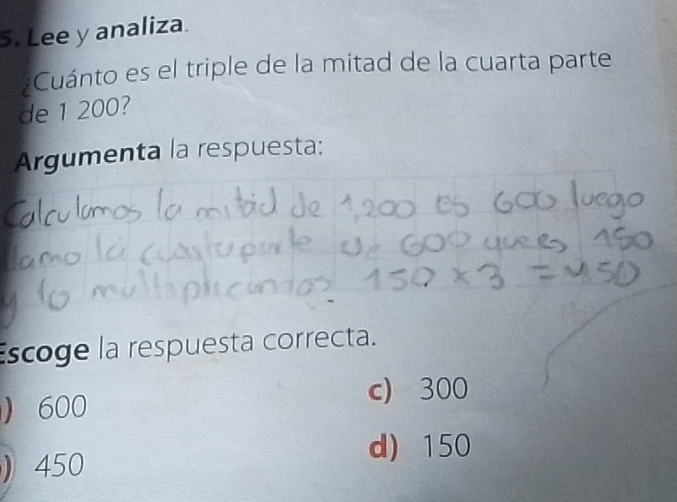 5. Lee y analiza.
¿Cuánto es el triple de la mitad de la cuarta parte
de 1 200?
Argumenta la respuesta:
Calculamos la mitad de 1,200 es 600 luego
la parte de 600 que es 150
y lo 150 x 3 = 450
Escoge la respuesta correcta.
) 600
c) 300
) 450
d) 150